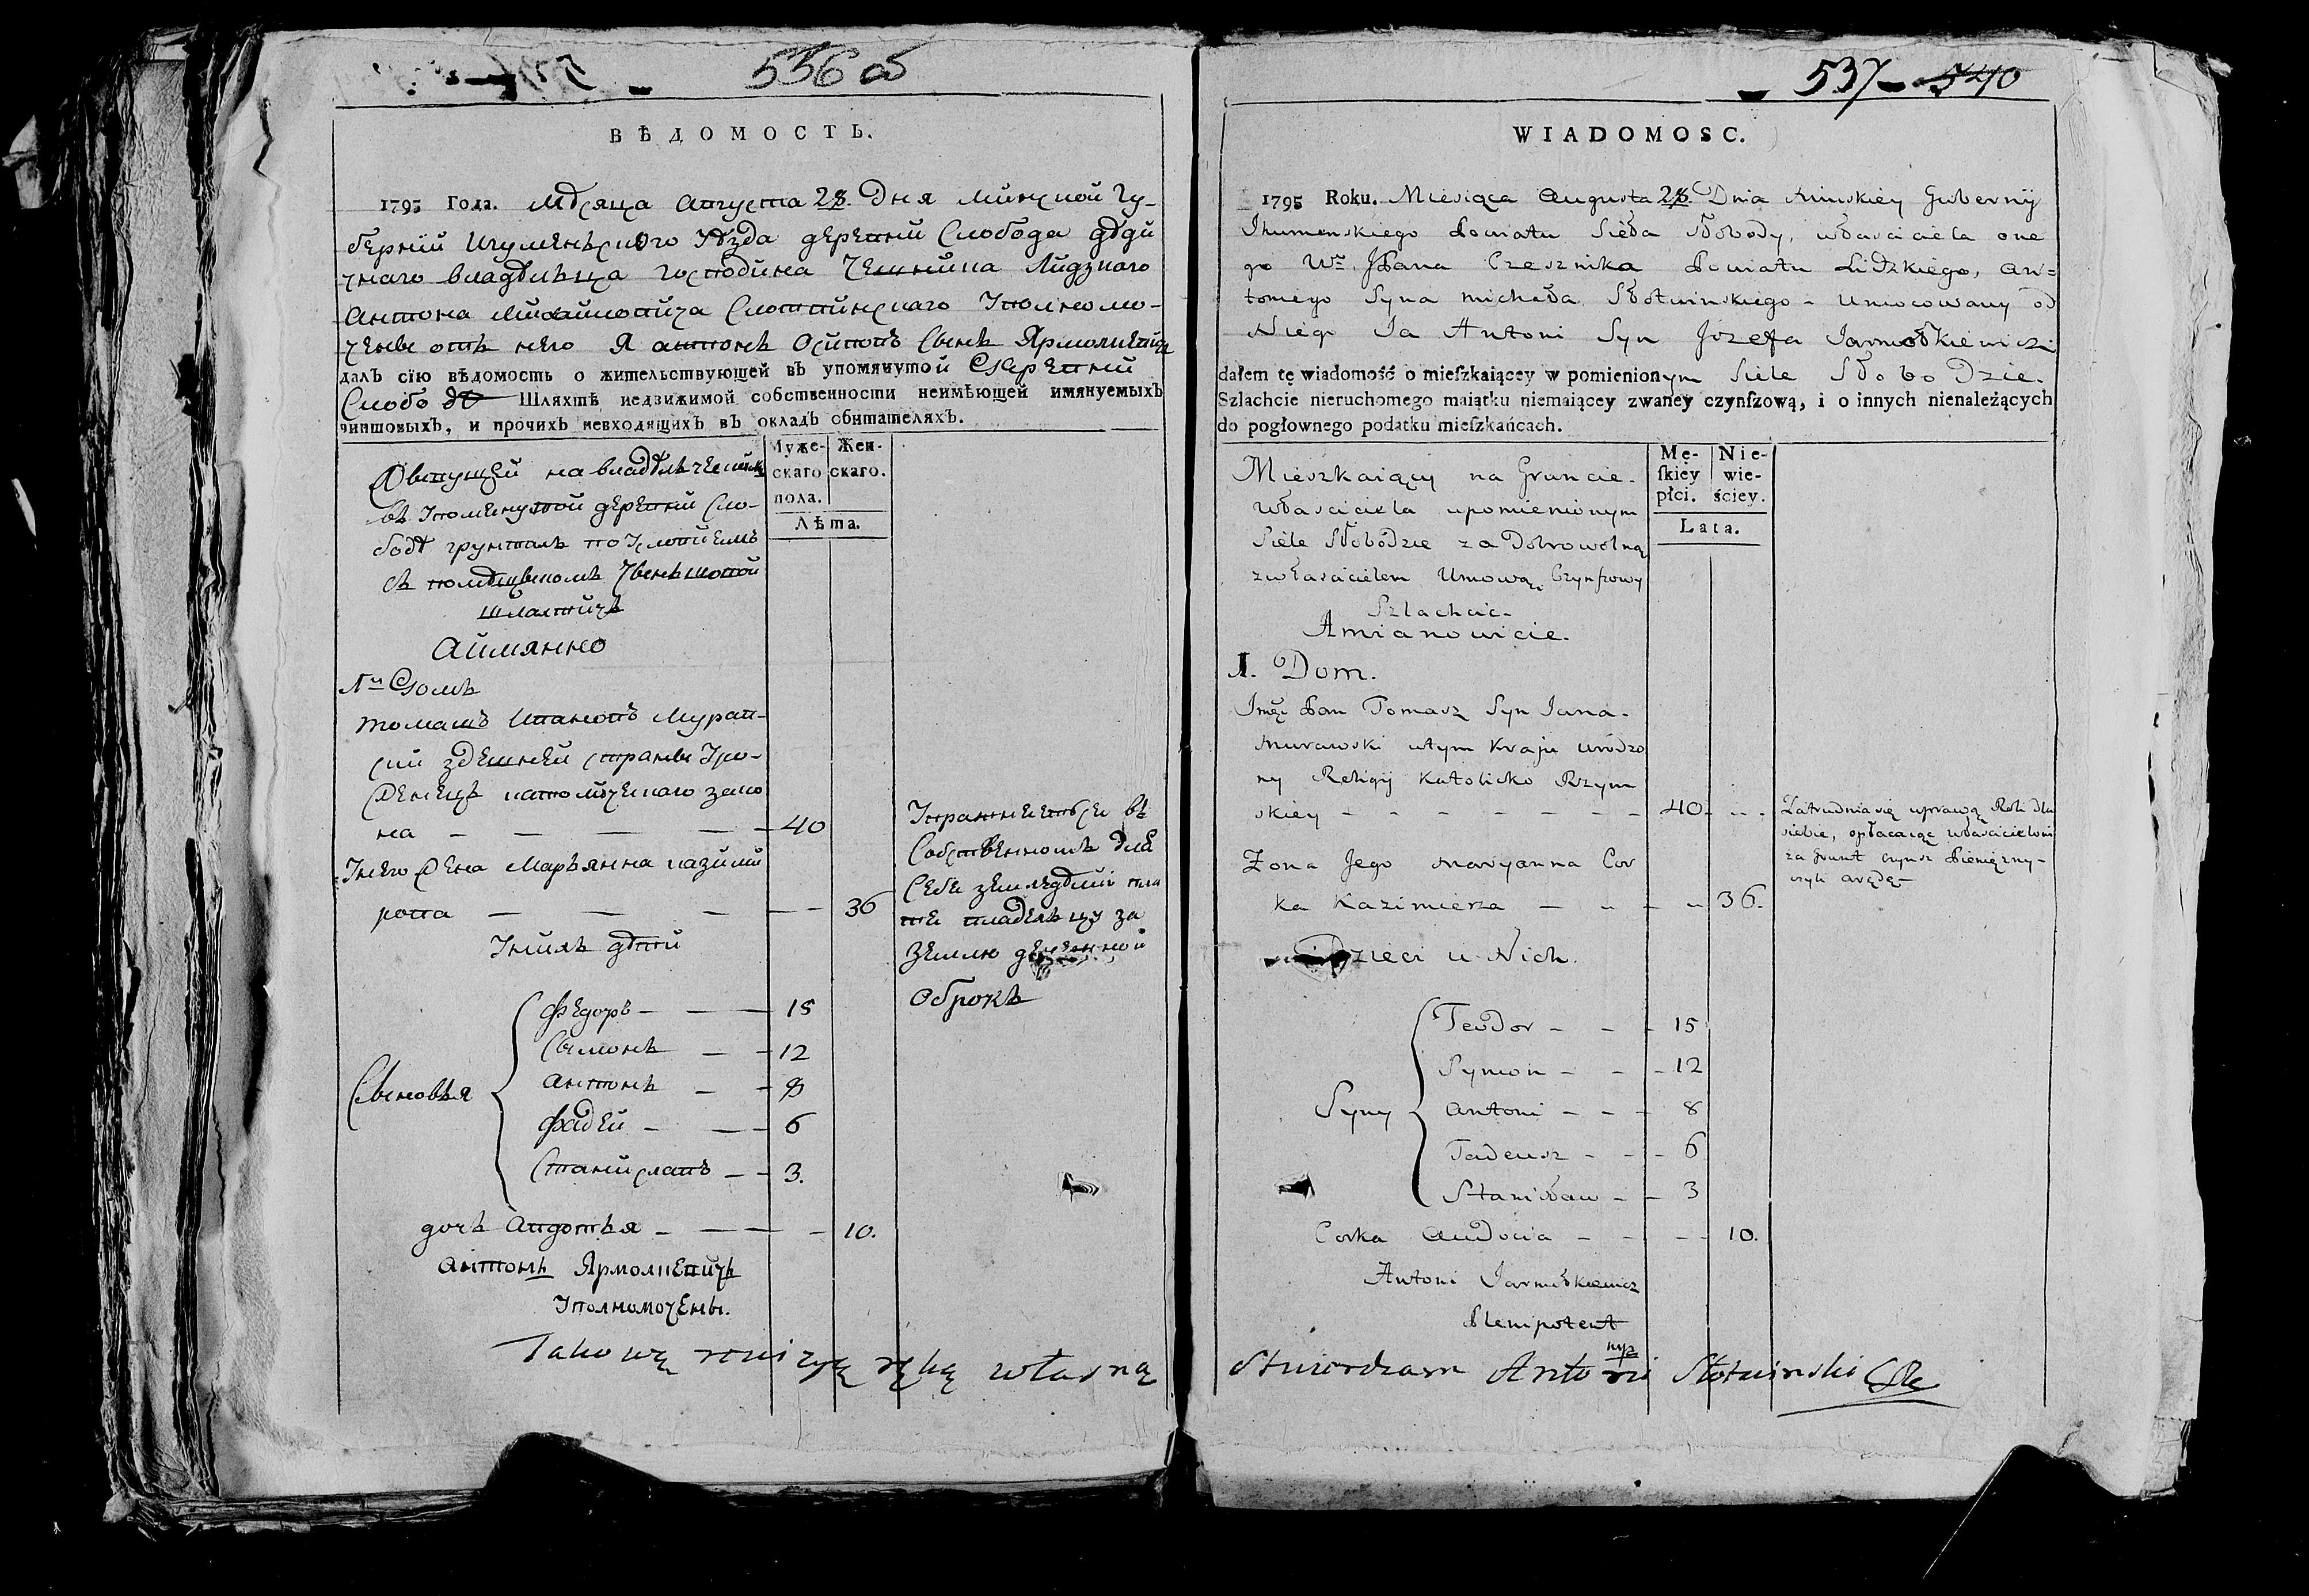 536 об
ВѢДОМОСТЬ.
1795 Года. Мѣсяца Августа 28 Дня Минской Гу-
берніи Игуменьского Уѣзда деревни Слобода дѣди
чнаго владѣльца господина чешника Лидзкого
Антона Михайловича Слотвинскаго Уполномо-
чены отъ него Я антонъ Осиповъ Сынъ Ярмолкевичъ
далъ сїю вѣдомость о жительствующей въ упомянутой Деревни
Слободѣ Шляхтѣ недвижимой собственности неимѣющей имянуемыхъ
чиншовыхъ, и прочихъ невходящихъ въ окладъ обитателяхъ.
Муже- Жен-
скаго скаго.
пола.
Лѣта.
Живущей на
въ упомянутой деревни Сло-
бодѣ грунтахъ по условіемъ
съ помѣщикомъ чыншовой
шляхтичъ
Аймянно
1й Домъ
томашъ Ивановъ Мурав-
ский здешней страны Уро-
женецъ католическаго зако
на — — — — 40
Унего Жена Марьянна кази́ми
рова — — — — 36
Управннеться въ
Собственномъ для
Себе земледѣлії пла
те владельцу за
Землю денежной
Оброкъ
Унихъ дѣти
Сыновья
Федоръ — — 15
Сымонъ — — 12
Антонъ — — 8
Фадей — — 6
Станиславъ — — 3.
дочь Авдотья — — — 10.
Антонъ Ярмолкевичъ
Уполномочены.
Takowę rewizyę ręką własną
537 540
WIADOMOSC.
1795 Roku. Miesiąca Augusta 28 Dnia Minskiey Gubernij
Ihumenskiego Powiatu Sieła Słobody, właściciela one
go Wo JPana Czesznika Powiatu Lidzkiego, An=
toniego Syna Michała Słotwinskiego - Umocowany od
Niego Ja Antoni Syn Jozefa Jarmołkiewicz
dałem tę wiadomość o mieſzkaiącey w pomienionym Siele Słobodzie.
Szlachcie nieruchomego maiątku niemaiącey zwaney czynſzową, i o innych nienależących
do pogłownego podatku mieſzkańcach.
Mę- Nie-
ſkiey wie-
płci. ściey.
Lata.
Mieszkaiący na Gruncie.
Własciciela upomienionym
Siele Słobodzie za Dobrowolną
z własicielem Umową, Czynſzowy
Szlachcic-
Amianowicie.
1. Dom.
Imć Pan Tomasz Syn Jana.
Murawski wtym Kraju urodzo
ny Religij Katolicko Rzym
skiey - - - - - - - 40 - - -
Zatrudnia się uprawą Roli dla
siebie, opłacaiąc własicielowi
za Grunt czynsz Pieniężny-
czyli arędę-
Żona Jego Maryanna Cor
ka Kazimierza - - - - 36.
Dzieci u Nich.
Syny
Teodor - - - 15
Symon - - - 12
Antoni - - - 8
Tadeusz - - - 6
Stanisław - - 3
Corka Audocia - - - - 10.
Antoni Jarmołkiewicz
Plenipotent
mp
Stwierdzam Antoni Słotwinski